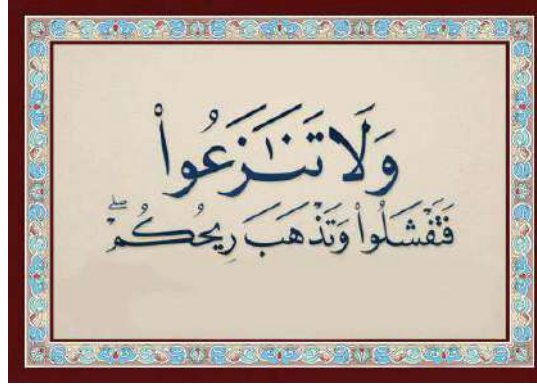 وَلَا تَنَٰزَعُوا۟
فَتَفْشَلُوا۟ وَتَذْهَبَ رِيحُكُمْ ۖ